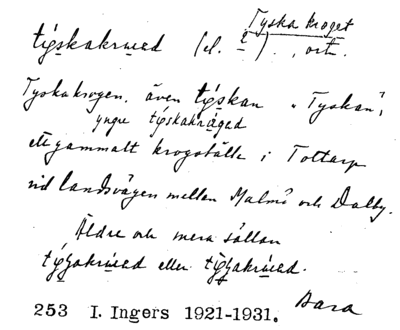 Tyska kroget
(el. ), ort.
Tyskakrogen, även "Tyskan",
yngre
ett gammalt krogställe i Tottarp
vid landsvägen mellan Malmö och Dalby.
Äldre och mera sällan
eller
Bara
253 I. Ingers 1921-1931.